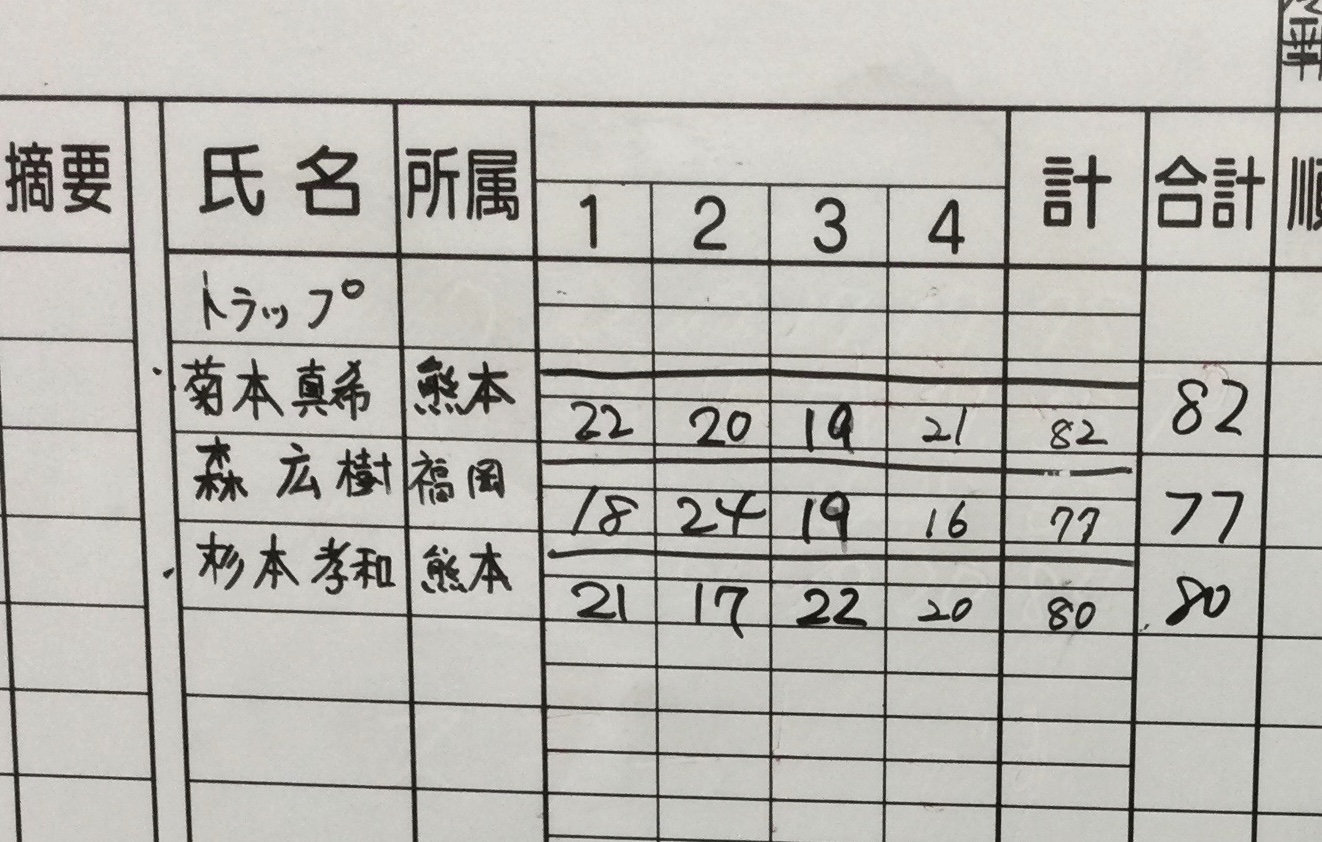 摘要 氏名 所属 1 2 3 4 計 合計 順
トラップ
菊本真希 熊本 22 20 19 21 82 82
森 広樹 福岡 18 24 19 16 77 77
杉本孝和 熊本 21 17 22 20 80 80